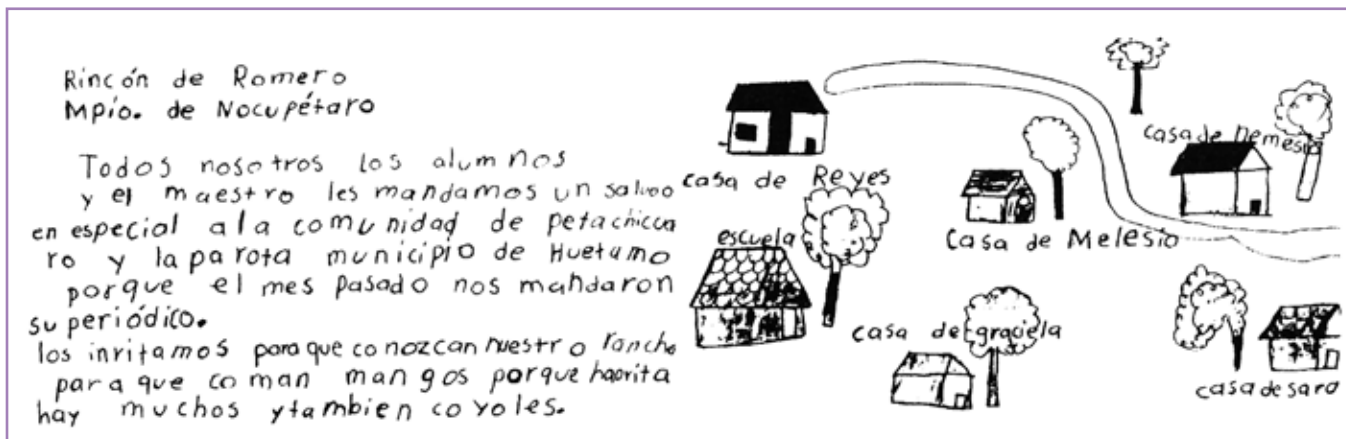 Rincón de Romero
Mpio. de Nocupétaro
Todos nosotros los alumnos
y el maestro les mandamos un saludo
en especial ala comunidad de petachicua
ro y la parota municipio de Huetamo
porque el mes pasado nos mandaron
su periódico.
los invitamos para que conozcan nuestro rancho
para que coman mangos porque haorita
hay muchos ytambien coyoles.
casa de Nemesio
casa de Reyes
escuela
Casa de Melesio
casa de graciela
casa de sara